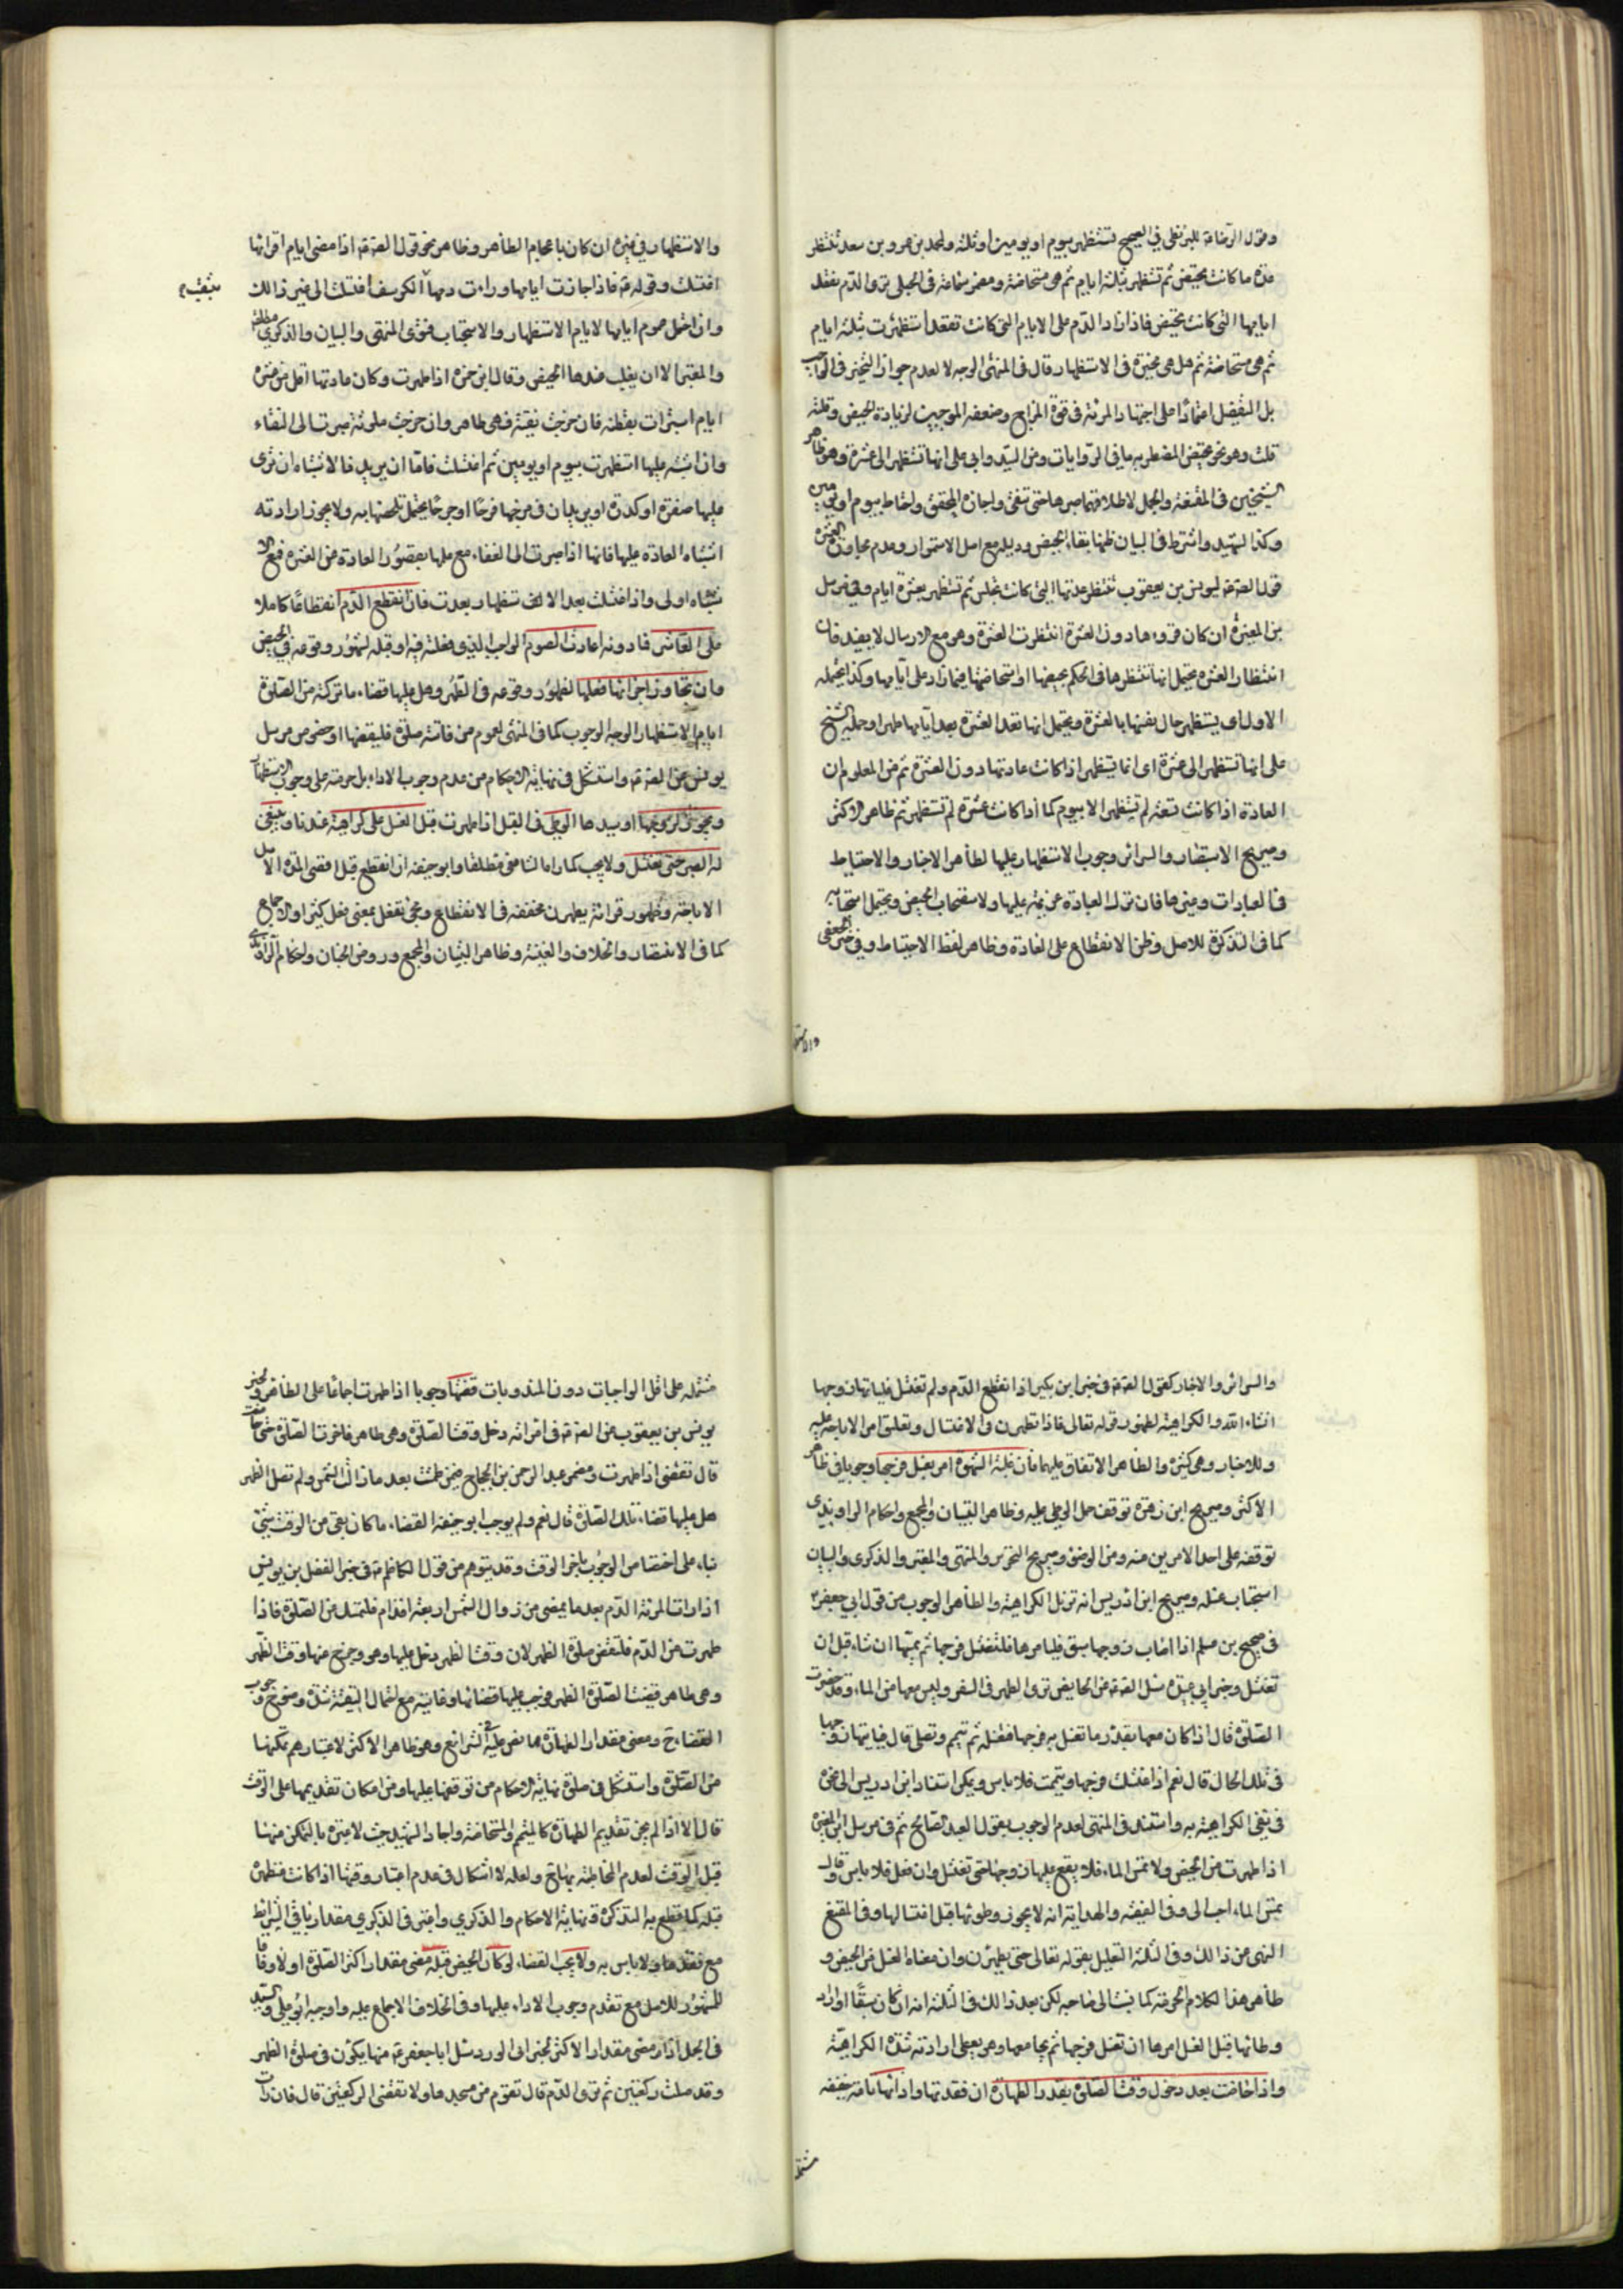 وقول الرضا ع للبزنطي في الصحيح تستظهر بيوم او يومين او ثلثة ولمحمد بن عمرو بن سعد تنتظر
عدة ما كانت تحيض ثم تستظهر بثلثة ايام ثم هي مستحاضة ومضمر سماعة في الحبلى ترى الدم تقعد
ايامها التي كانت تحيض فاذا زاد الدم على الايام التي كانت تقعد استظهرت بثلثة ايام
ثم هي مستحاضة ثم هل هي مخيرة في الاستظهار قال في المنتهى الوجه لا لعدم جواز التخيير في الواجب
بل التفصيل اعتمادا على اجتهاد المرئة في قوة المزاج وضعفه الموجبين لزيادة الحيض وقلته
قلت وهو نحو تحيض المضطربة بما في الروايات وعن السيد وابي علي انها تستظهر الى عشرة وهو ظاهر
الشيخين في المقنعة والجمل لاطلاقهما صبرها حتى تنقى واجازه المحقق واحتاط بيوم او يومين
وكذا الشهيد واشترط في البيان ظنها بقاء الحيض ودليله مع اصل الاستمرار وعدم تجاوز العشرة
قول الصادق ع ليونس بن يعقوب تنتظر عدتها التي كانت تجلس ثم تستظهر بعشرة ايام وفي مرسل
بن المغيرة ان كان قروءها دون العشرة انتظرت العشرة وهو مع الارسال لا يفيد فان
انتظار العشرة يحتمل انها تنتظرها في الحكم بحيضها او استحاضتها فيما زاد على ايامها وكذا يحتمله
الاول اي يستظهر حال نفسها بالعشرة ويحتمل انها تعد العشرة بعد ايامها طهرا وحمله الشيخ
على انها تستظهر الى عشرة اي انما تستظهر اذا كانت عادتها دون العشرة ثم من المعلوم ان
العادة اذا كانت تسعة لم تستظهر الا بيوم كما اذا كانت عشرة لم تستظهر ثم ظاهر الاكثر
وصريح الاستبصار والسرائر وجوب الاستظهار عليها لظاهر الاخبار والاحتياط
في العبادات وغيرها فان ترك العبادة عزيمة عليها ولاستصحاب الحيض ويحتمل استحبابه
كما في التذكرة للاصل وظن الانقطاع على العادة وظاهر لفظ الاحتياط وفي خبر الجعفي
والاستظهار
والاستظهار في غيره ان كان باعجام الطاء هر وظاهر نحو قول الصادق ع اذا مضى ايام اقرائها
اغتسلت وقوله ع فاذا جازت ايامها ورات دمها الكرسف اغتسلت الى غير ذالك
وان احتمل عموم ايامها لايام الاستظهار والاستحباب فتوى المنتهى والبيان والذكرى
والمعتبر الا ان يغلب عندها الحيض وقال ابن حمزه اذا طهرت وكان عادتها اقل من عشرة
ايام استبرات بقطنة فان خرجت نقية فهي طاهر وان خرجت ملوثة صبرت الى النقاء
وان اشتبه عليها استظهرت بيوم او يومين ثم اغتسلت فاما ان يريد بالاشتباه ان ترى
عليها صفرة او كدرة او يريد ان في فرجها قرحا او جرحا يحتمل تلطخها به ولا يجوز ارادته
اشتباه العادة عليها فانها اذا صبرت الى النقاء مع علمها بقصور العادة عن العشرة فمع الا
شتباه اولى واذا اغتسلت بعد الاستظهار تعبدت فان انقطع الدم انقطاعا كاملا
على العاشر فما دونه اعادت الصوم الواجب الذي فعلته فيه او قبله لظهور وقوعه في الحيض
وان تجاوز اجزاها فعلها لظهور وقوعه في الطهر وهل عليها قضاء ما تركته من الصلوة
ايام الاستظهار الوجه الوجوب كما في المنتهى لعموم من فاتته صلوة فليقضها او خصوص مرسل
يونس عن الصادق ع واستشكل في نهاية الاحكام من عدم وجوب الاداء بل حرمته على وجوب الاستظهار
ويجوز لزوجها او سيدها الوطي في القبل اذا طهرت قبل الغسل على كراهية عندنا وينبغي
له الصبر حتى تغتسل ولا يجب كما راه الشافعي مطلقا وابو حنيفة ان انقطع قبل اقصى المدة الاصل
الاباحة وظهور قرائة يطهرن مخففة في الانقطاع ومجئ تفعل بمعنى فعل كثيرا والاجماع
كما في الانتصار والخلاف والغنية وظاهر التبيان والمجمع وروض الجنان واحكام الراوندي
والسرائر والاخبار كقول الصادق ع في خبر ابن بكير اذا انقطع الدم ولم تغتسل فلياتها زوجها
انشاء الله والكراهية لظهور قوله تعالى فاذا تطهرن في الاغتسال وتعلق امر الاباحة عليه
وللاخبار وهي كثيرة والظاهر الاتفاق عليها فان غلبته الشهوة امر بغسل فرجها وجوبا في ظاهر
الاكثر وصريح ابن زهرة توقف حل الوطي عليه وظاهر التبيان والمجمع واحكام الراوندي
توقفه على احد الامرين منه ومن الوضوء وصريح التحرير والمنتهى والمعتبر والذكرى والبيان
استحباب غسله وصريح ابن ادريس انه تزيل الكراهية والظاهر الوجوب من قول ابي جعفر ع
في صحيح بن مسلم اذا اصاب زوجها شبق فليامرها فلتغتسل فرجها ثم يمسها ان شاء قبل ان
تغتسل وخبر ابي عبيدة سئل الصادق ع عن الحايض ترى الطهر في السفر وليس معها من الماء وقد حضرت
الصلوة قال اذا كان معها بقدر ما تغسل به فرجها فتغسله ثم تتيمم وتصلي قال فياتيها زوجها
في تلك الحال قال نعم اذا غسلت فرجها وتيممت فلا باس ويمكن استناد ابن ادريس الى هذه
في نفي الكراهية به واستند في المنتهى لعدم الوجوب بقول العبد الصالح ع في مرسل ابن المغيرة
اذا طهرت من الحيض ولم تمس الماء فلا يقع عليها زوجها حتى تغتسل وان فعل فلا باس وقال
تمس الماء احب الي وفي الفقيه والهداية انه لا يجوز وطوئها قبل اغتسالها وفي المقنع
النهي عن ذالك وفي الثلثة التعليل بقوله تعالى حتى يطهرن وان معناه الغسل من الحيض و
ظاهر هذا الكلام الحرمة كما نسبت الى صاحبه لكن بعد ذالك في الثلثة انه ان كان شبقا اواراد
وطائها قبل الغسل امرها ان تغسل فرجها ثم يجامعها وهو يعطي ارادته شدة الكراهية
واذا حاضت بعد دخول وقت الصلوة بقدر الطهارة ان فقدتها وادائها تامة خفيفة
مشتملة
مشتملة على اقل الواجبات دون المندوبات قضتها وجوبا اذا طهرت اجماعا على الظاهر ولخبر
يونس بن يعقوب عن الصادق ع في امرائة دخل وقت الصلوة وهي طاهر فاخرت الصلوة حتى حاضت
قال تقضي اذا طهرت ومضمر عبد الرحمن بن الحجاج فيمن طمثت بعد ما زالت الشمس ولم تصل الظهر
هل عليها قضاء تلك الصلوة قال نعم ولم يوجب ابو حنيفة القضاء ما كان بقي من الوقت شئ
بناء على اختصاص الوجوب باخر الوقت وقد يتوهم من قول الكاظم ع في خبر الفضل بن يونس
اذا رات المرئة الدم بعد ما يمضي من زوال الشمس اربعة اقدام فلتمسك عن الصلوة فاذا
طهرت من الدم فلتقض صلوة الظهر لان وقت الظهر دخل عليها وهو وخرج عنها وقت الظهر
وهي طاهر فضيعت الصلوة الظهر فوجب عليها قضائها وغايته مع احتمال التقية شدة وضوح وجوب
القضاء ح ومضي مقدار الطهارة مما نص عليه في الشرائع وهو ظاهر الاكثر لاعتبارهم تمكنها
من الصلوة واستشكل في صلوة نهاية الاحكام من توقفها عليها ومن امكان تقديمها على الوقت
قال الا اذا لم يجز تقديم الطهارة كالمتيمم والمستحاضة واجاد الشهيد حيث لا عبرة بالتمكن منها
قبل الوقت لعدم المخاطبة بها ح ولعله لا اشكال في عدم اعتبار وقتها اذا كانت متطهرة
قبله كما قطع به التذكرة ونهاية الاحكام والذكرى واعتبر في الذكرى مقدار باقي الشرائط
مع فقدها ولا باس به ولا يجب القضاء لو كان الحيض قبله مضى مقدار اكثر الصلوة او لا وفاقا
للمشهور للاصل مع تقدم وجوب الاداء عليها وفي الخلاف الاجماع عليه واوجبه ابو علي والسيد
في الجمل اذا مضى مقدار الاكثر لخبر ابي الورد سئل ابا جعفر ع عنها يكون في صلوة الظهر
وقد صلت ركعتين ثم ترى الدم قال تقوم من مسجدها ولا تقضي الركعتين قال فان رات